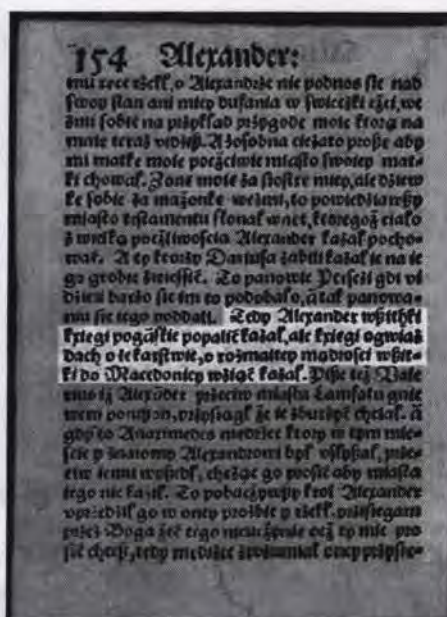 154 Alexander:
mu rece rzekł, o Alexandrze nie podnoś się nad
swoy stan ani miey dufania w świeckiey rzeczy, we
źmi sobie na przykład przygodę moię ktora na
mnie teraz widzisz. A zosobna cię zato proszę aby
mi matkę moię poczciwie miasto swoiey mat
ki chował. Zonę moię za siostrę miey, ale dziew
kę sobie za małżonkę weźmi, to powiedziawszy
miasto testamentu skonał wnet, ktoregoż ciało
z wielką poczliwością Alexander kazał pocho
wać. A ty ktorzy Dariusa zabili kazał ie na ie
go grobie
To panowie Perscy gdi wi
dzieli barzo się im to podobało, a tak panowa
niu się iego poddali. Tedy Alexander wszithki
kxięgi pogāskie popalić kazał, ale kxięgi o gwiaz
dach o lekarstwie, o rozmaitey mądrości wszit
ki do Macedoniey wziąć kazał. Pisze też Vale
rius iż Alexander przeciw miasta Lamsaku gnie
wem poruszon, przysiągł że ie zburzyć chciał. a
gdy to Anaximedes mędrzec ktory w tym mie
ście y znaiomy Alexandrowi był usłyszał, prze
ciw iemu wyszedł, chcąc go prosić aby miasta
tego nie kaził. To pobaczywszy krol Alexander
uprzedził go w oney prośbie y rzekł, przysięgam
przez Boga żeć tego nieuczynię ocż ty mię pro
sić chcesz, tedy mędrzec zrozumiał oney przysię-